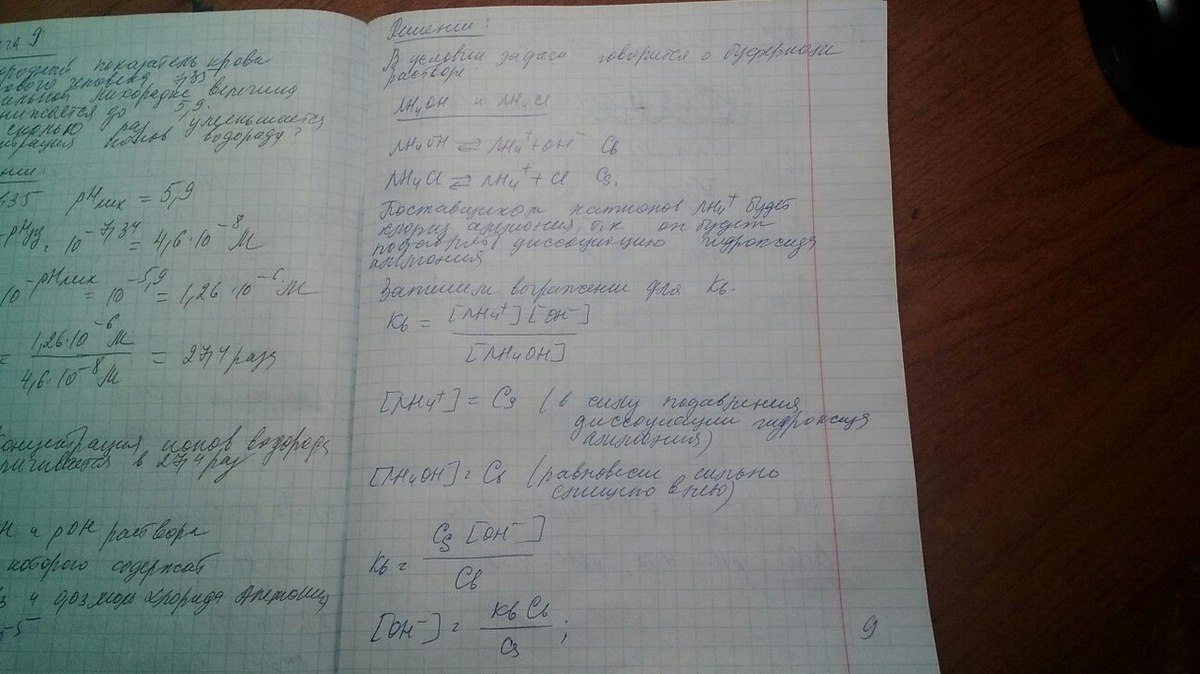 9
показатель крови
человека 7,35
лихорадке величина
до 5,9.
сколько раз уменьшается
ионов водорода?
7,35 pHлих = 5,9
10⁻⁷,³⁴ = 4,6·10⁻⁸ М
10^-pHлих = 10⁻⁵,⁹ = 1,26·10⁻⁶ М
= 1,26·10⁻⁶ М / 4,6·10⁻⁸ М = 27,4 раза
концентрация ионов водорода
в 27,4 раз
и pOH раствора
которого содержат
и моль хлорида аммония
Решение:
В условии задачи говорится о буферном
растворе:
NH₄OH и NH₄Cl
NH₄OH ⇄ NH₄⁺ + OH⁻ Cb
NH₄Cl ⇄ NH₄⁺ + Cl Cs.
Поставщиком катионов NH₄⁺ будет
хлорид аммония, т.к он будет
подавлять диссоциацию гидроксида
аммония
Запишем выражение для Kb.
Kb = [NH₄⁺][OH⁻] / [NH₄OH]
[NH₄⁺] = Cs (в силу подавления
диссоциации гидроксида
аммония)
[NH₄OH] = Cb (равновесие сильно
смещено влево)
Kb = Cs [OH⁻] / Cb
[OH⁻] = Kb Cb / Cs ;
9